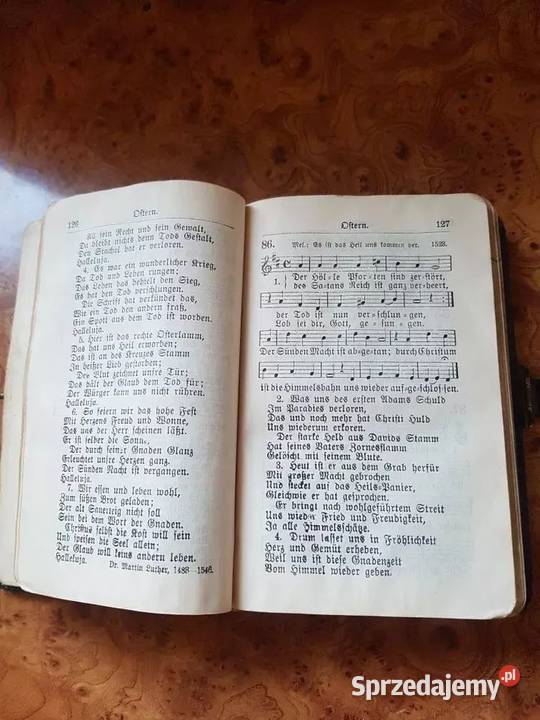 126
Ostern.
All sein Recht und sein Gewalt,
Da bleibt nichts denn Tods Gestalt,
Den Stachel hat er verloren.
Halleluja.
4. Es war ein wunderlicher Krieg,
Da Tod und Leben rungen;
Das Leben das behielt den Sieg,
Es hat den Tod verschlungen.
Die Schrift hat verkündet das,
Wie ein Tod den andern fraß,
Ein Spott aus dem Tod ist worden.
Halleluja.
5. Hier ist das rechte Osterlamm,
Das hat uns Heil erworben;
Das ist an des Kreuzes Stamm
In heißer Lieb gestorben;
Des Blut zeichnet unsre Tür;
Das hält der Glaub dem Tod für;
Der Würger kann uns nicht rühren.
Halleluja.
6. So feiern wir das hohe Fest
Mit Herzens Freud und Wonne,
Das uns der Herr scheinen läßt.
Er ist selber die Sonne,
Der durch seiner Gnaden Glanz
Erleuchtet unsre Herzen ganz.
Der Sünden Nacht ist vergangen.
Halleluja.
7. Wir essen und leben wohl,
Zum süßen Brot geladen;
Der alt Sauerteig nicht soll
Sein bei dem Wort der Gnaden.
Christus selbst die Kost will sein
Und speisen die Seel allein;
Der Glaub will keins andern leben.
Halleluja.
Dr. Martin Luther, 1483–1546.
Ostern.
127
86. Mel.: Es ist das Heil uns kommen her. 1523.
1. Der Höl-le Pfor-ten sind zer-stört,
des Sa-tans Reich ist ganz ver-heert,
der Tod ist nun ver-schlun-gen,
Lob sei dir, Gott, ge-sun-gen.
Der Sünden Macht ist ab-ge-tan; durch Christum
ist die Himmelsbahn uns wieder auf-ge-schlos-sen.
2. Was uns des ersten Adams Schuld
Im Paradies verloren,
Das und noch mehr hat Christi Huld
Uns wiederum erkoren.
Der starke Held aus Davids Stamm
Hat seines Vaters Zornesflamm
Gelöscht mit seinem Blute.
3. Heut ist er aus dem Grab herfür
Mit großer Macht gebrochen
Und stecket auf das Heils-Panier,
Gleichwie er hat gesprochen.
Er bringt nach wohlgeführtem Streit
Uns wieder Fried und Freudigkeit,
Ja alle Himmelsschätze.
4. Drum lasset uns in Fröhlichkeit
Herz und Gemüt erheben,
Weil uns ist diese Gnadenzeit
Vom Himmel wieder geben.
Sprzedajemy.pl